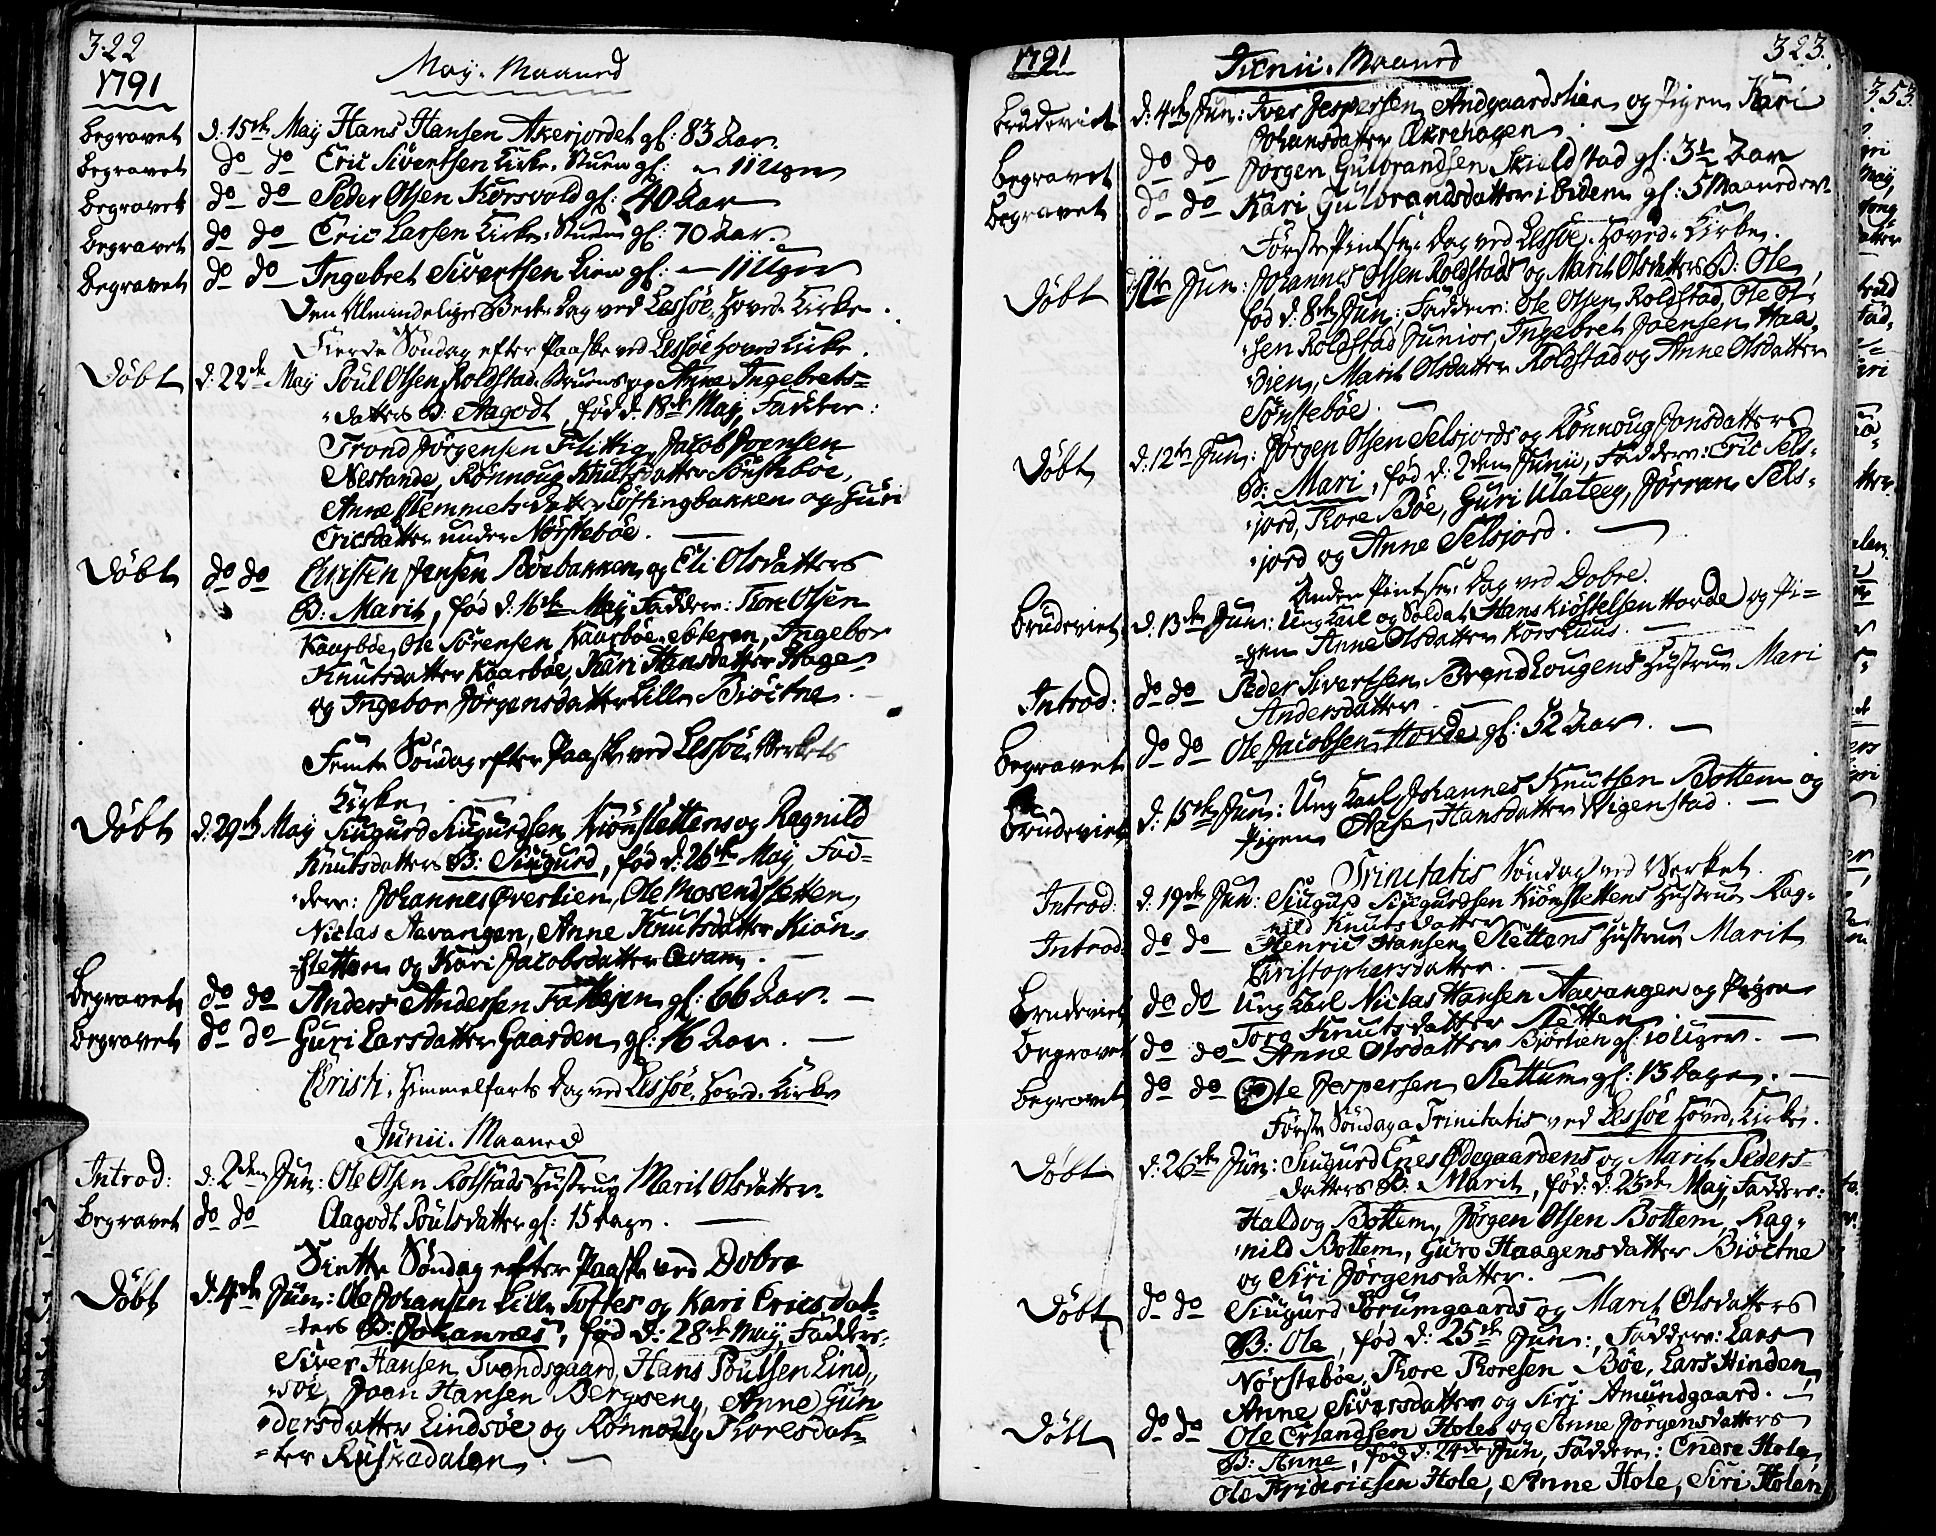 322
1791
May. Maaned
Begravet d. 15de May Hans Hansen Akerjordet gl: 83 Aar.
Begravet do do Eric Sivertsen Kirke-Stuen gl: 11 Uger
Begravet do do Peder Olsen Korsvold gl: 40 Aar
Begravet do do Eric Larsen Kirke-Stuen gl: 70 Aar.
Begravet do do Ingebret Sivertsen Lien gl: 11 Uger
Den Almindelige Bede-Dag ved Lessöe Hoved-Kirke.
Fierde Söndag efter Paaske ved Lessöe Hoved Kirke.
Döbt d: 22de May Poul Olsen Roldstad og Anne Ingebrets-
datters B: Aagodt, fød d. 18de May, Fadder:
Trond Jørgensen Flittie, Jacob Joensen
Nestande, Rönnoug Knutsdatter Sönsteböe,
Anne Clemmetsdatter Loftingbakken og Guri
Ericsdatter under Nörsteböe.
Döbt do do Christen Jensen Böebakken og Eli Olsdatters
B: Marit, fød d: 16de May, Fadder: Tore Olsen
Kaarböe, Ole Sörensen Kaarböe-eteren, Ingebor
Knutsdatter Kaarböe, Kari Hansdatter Hage
og Ingebor Jörgensdatter Lille Biöctne.
Femte Söndag efter Paaske ved Lessöe Verkets
Kirke.
Döbt d. 29de May Siugurd Siugurdsen Kiönslettens og Ragnild
Knutsdatters B: Siugurd, fød d: 26de May, Fad-
dere: Johannes Øverlien, Ole Mosendsletten,
Niclas Aavangen, Anne Knutsdatter Kiön-
sletten og Kari Jacobsdatter Qvam.
Begravet do do Anders Andersen gl: 66 Aar.
Begravet do do Guri Larsdatter Gaarden gl: 16 Aar.
Christi Himmelfarts Dag ved Lessöe Hoved-Kirke
Junii. Maaned
Introd: d: 2den Jun: Ole Olsen Rolstads Hustrue Marit Olsdatter.
Begravet do do Aagodt Poulsdatter gl: 15 Dage.
Siette Söndag efter Paaske ved Dobre
Döbt d: 4de Jun: Ole Johansen Lille Toftes og Kari Ericsdat-
ters B: Johannes, fød d: 28de May, Fadder:
Siver Hansen Tvondsgaard, Hans Poulsen Lind-
söe, Joen Hansen Bergseng, Anne Gun-
dersdatter Lindsöe og Rönnoug Thoresdat-
ter Ruskedalen.
1791
Junii. Maaned
323.
Brudeviet d: 4de Jun: Iver Jespersen Andgaardslien og Pigen Kari
Johansdatter Akrehagen.
Begravet do do Jørgen Gulbrandsen Skieldstad gl: 3½ Aar
Begravet do do Kari Gulbrandsdatter i Eiden gl: 5 Maaneder
Første Pintse-Dag ved Lessöe-Hoved-Kirke.
Döbt d 12te Jun: Johannes Olsen Roldstads og Marit Olsdatters B: Ole,
fød d: 8de Jun: Faddere: Ole Olsen Roldstad, Ole Ol-
sen Roldstad Junior, Ingebret Joensen Haa-
dien, Marit Olsdatter Roldstad og Anne Olsdatter
Sönsteböe.
Döbt d. 12te Jun: Jørgen Olsen Selsjords og Rönnoug Jonsdatters
B: Mari, fød d: 2den Junii, Faddere: Eric Sels-
jord, Thore Böe, Guri Ulateeg, Jörran Sels-
jord og Anne Selsjord.
Anden Pintse-Dag ved Dobre.
Brudeviet d. 13de Jun: Ung Karl og Soldat Hans Kiöstelsen Horde og Pi-
gen Anne Olsdatter Korshuus.
Introd: do do Peder Sivertsen Brendlougens Hustrue Mari
Andersdatter.
Begravet do do Ole Jacobsen Horde gl: 52 Aar.
Brudeviet d: 15de Jun: Ung Karl Johannes Knutsen Bottem og
Pigen Aase Hansdatter Wigenstad.
Trinitatis Söndag ved Verket.
Introd: d. 19de Jun: Siugurd Siugurdsen Kiönslettens Hustrue Rag-
nild Knutsdatter
Introd: do do Henric Hansen Slettens Hustrue Marit
Christophersdatter.
Brudeviet do do Ung Karl Niclas Hansen Aavangen og Pigen
Torø Knutsdatter Sletten
Begravet do do Anne Olsdatter Biörlien gl: 10 Uger.
Begravet do do Ole Jespersen Slettum gl: 13 Dage.
Første Söndag a Trinitatis ved Lessöe Hoved-Kirke.
Döbt d. 26de Jun: Siugurd Enes Ødegaardens og Marit Peders-
datters B: Marit, fød: d: 25de May, Faddere:
Haldog Bottem, Jørgen Olsen Bottem, Rag-
nild Bottem, Guro Haagensdatter Biöctne
og Siri Jørgensdatter.
Döbt do do Siugurd Sörumgaards og Marit Olsdatters
B: Ole, fød d: 25de Jun:, Faddere: Lars
Nörsteböe, Thore Thoresen Böe, Lars Hinden,
Anne Siversdatter og Siri Amundgaard.
Döbt do do Ole Erlandsen Holes og Anne Jørgensdatters
B: Anne, fød d: 24de Jun, Faddere: Endre Hole,
Ole Fridericksen Hole, Anne Hole, Siri Holen
353